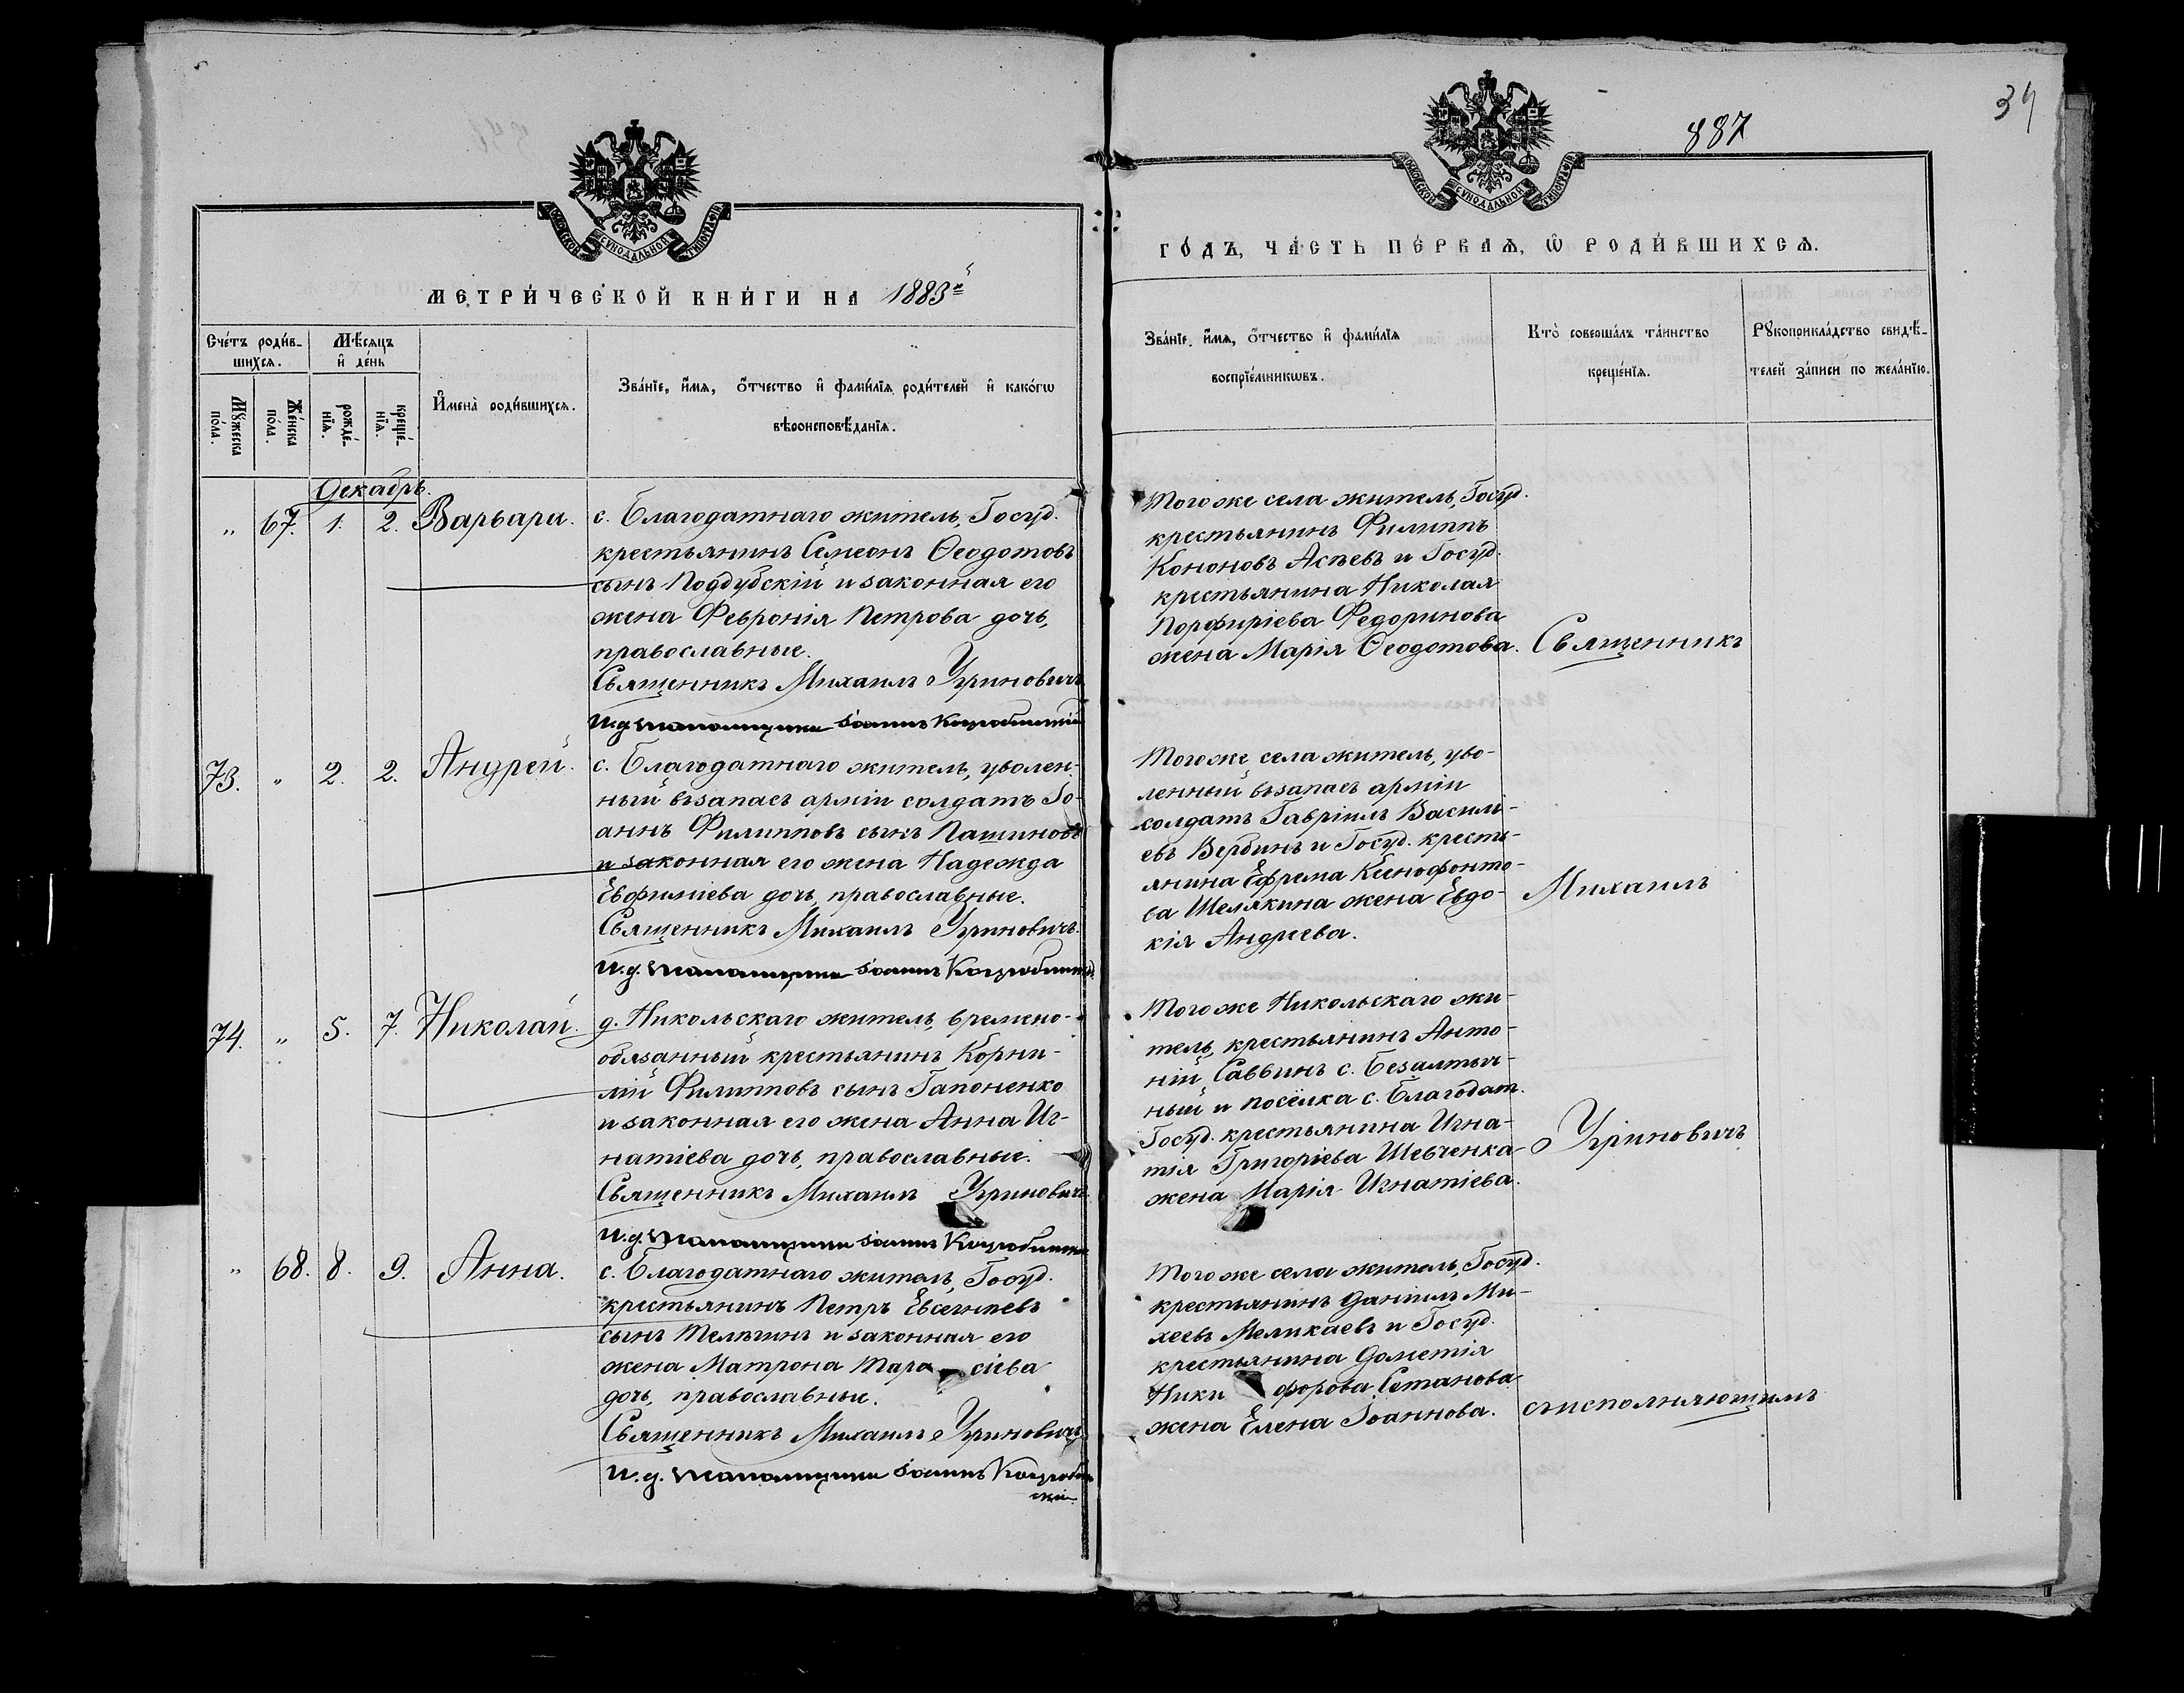 МОСКОВСКОЙ СѴНОДАЛЬНОЙ ТИПОГРАФІИ
МЕТРИ́ЧЕСКОЙ КНИ́ГИ НА 1883й
Сче́тъ роди́в-
шихсѧ.
Мѣ́сяцъ
и҆ де́нь
Мꙋ́жеска
по́ла.
Же́нска
по́ла.
рожде́-
нїѧ.
креще́-
нїѧ.
И҆мена̀ роди́вшихсѧ.
Зва́нїе, и҆́мѧ, ѻ҆́тчество и҆ фами́лїѧ роди́телей и҆ како́гѡ
вѣроисповѣ́данїѧ.
Декабрь.
„ 67. 1. 2. Варвара.
с. Благодатнаго житель, Госуд.
крестьянинъ Семеонъ Ѳеодотовъ
сынъ Поддубскій и законная его
жена Февронія Петрова дочь,
православные.
Священникъ Михаилъ Угриновичъ
И.д. псаломщика Іоаннъ
73. „ 2. 2. Андрей.
с. Благодатнаго житель, уволен-
ный въ запасъ арміи солдатъ Іо-
аннъ Филипповъ сынъ Пашиновъ
и законная его жена Надежда
Евфиміева дочь, православные.
Священникъ Михаилъ Угриновичъ.
И.д. псаломщика Іоаннъ
74. „ 5. 7. Николай.
д. Никольскаго житель, времено-
обязанный крестьянинъ Корни-
лій Филипповъ сынъ Гапоненко
и законная его жена Анна Иг-
натіева дочь, православные.
Священникъ Михаилъ Угриновичъ
И.д. псаломщика Іоаннъ
„ 68. 8. 9. Анна.
с. Благодатнаго житель, Госуд.
крестьянинъ Петръ Евсегніевъ
сынъ Телягинъ и законная его
жена Матрона Тара сіева
дочь, православные.
Священникъ Михаилъ Угриновичъ
И.д. псаломщика Іоаннъ
34
887
МОСКОВСКОЙ СѴНОДАЛЬНОЙ ТИПОГРАФІИ
ГО́ДЪ, ЧА́СТЬ ПЕ́РВАѦ, Ѡ҆ РОДИ́ВШИХСѦ.
Зва́нїе, и҆́мѧ, ѻ҆́тчество и҆ фами́лїѧ
воспрїе́мникѡвъ.
Кто̀ соверша́лъ та́инство
креще́нїѧ.
Рꙋкоприкла́дство свидѣ́-
телей за́писи по жела́нїю.
Того же села житель, Госуд.
крестьянинъ Филиппъ
Кононовъ Асѣевъ и Госуд.
крестьянина Николая
Порфиріева Федоринова
жена Марія Ѳеодотова.
Священникъ
Того же села житель, уво-
ленный въ запасъ арміи
солдатъ Гавріилъ Василі-
евъ Вербинъ и Госуд. кресть-
янина Ефрема Ксенофонто-
ва Шелякина жена Евдо-
кія Андреева.
Михаилъ
Того же Никольскаго жи-
тель, крестьянинъ Анто-
ній Саввинъ с. Безалтыч-
ный и посёлка с. Благодат.
Госуд. крестьянина Игна-
тія Григоріева Шевченка
жена Марія Игнатіева.
Угриновичъ
Того же села житель, Госуд.
крестьянинъ Даніилъ Ми-
хеевъ Меликаевъ и Госуд.
крестьянина Дометія
Ники форова Сетанова
жена Елена Іоаннова.
съ исполняющимъ